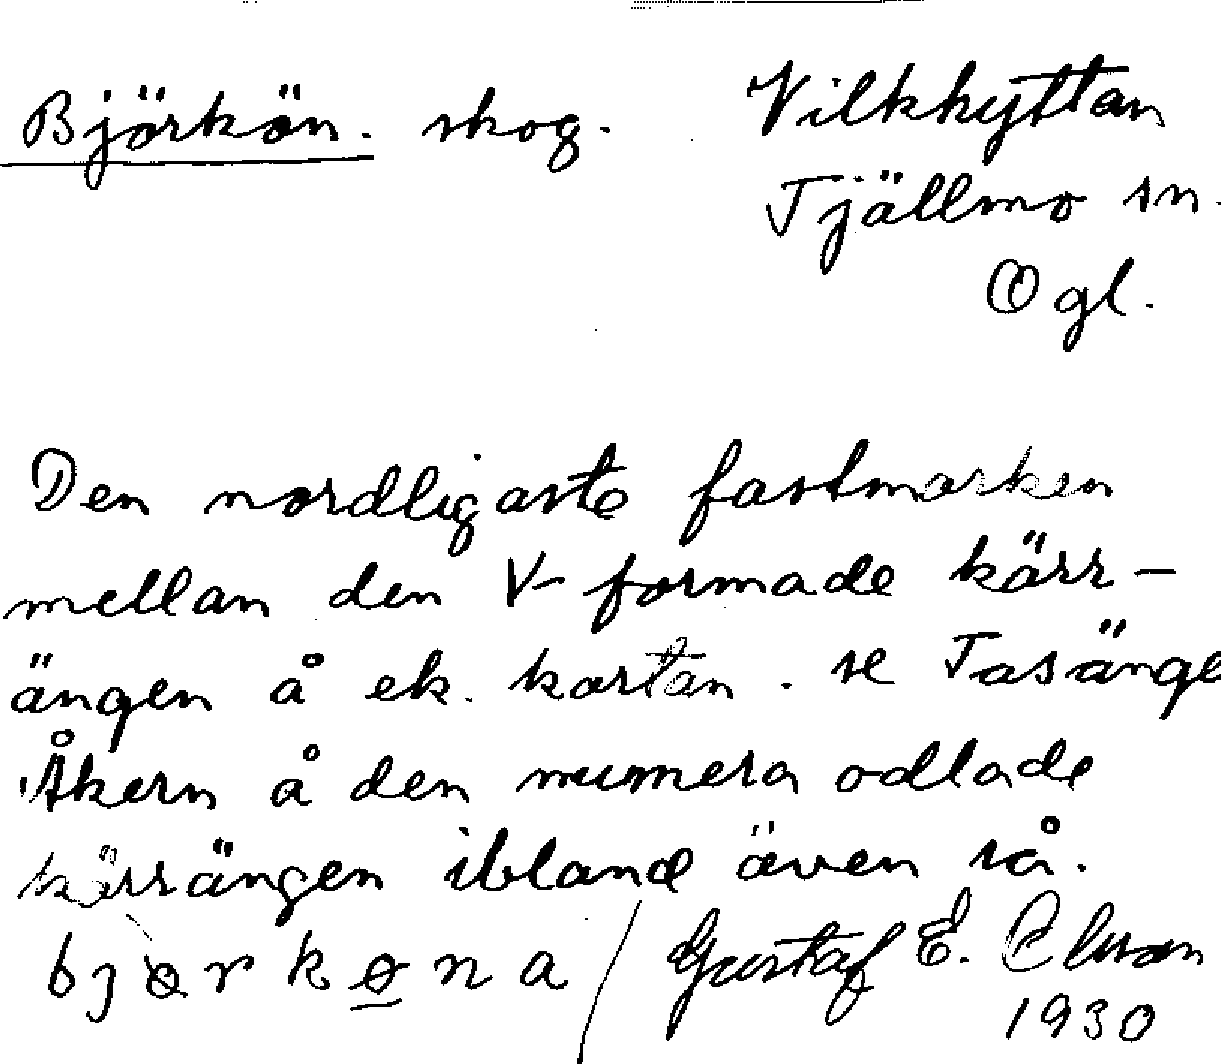 Björkön. skog. Vilkhyttan
Tjällmo sn.
Ögl.
Den nordligaste fastmarken
mellan den V-formade kärr-
ängen å ek. kartan. se Tasänge
Åkern å den numera odlade
kärrängen ibland även så.
bjørkøna / Gustaf E.
1930